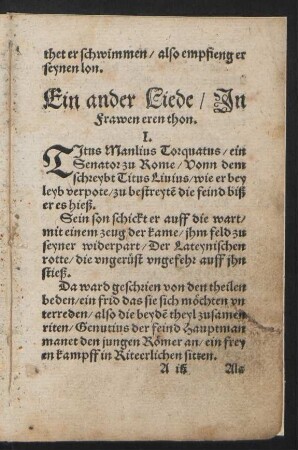 thet er schwimmen / also empfieng er
seynen lon.
Ein ander Liede / In
Frawen eren thon.
I.
TItus Manlius Torquatus / ein
Senator zu Rome / Vonn dem
schreybt Titus Livius / wie er bey
leyb verpote / zu bestreytẽ die feind biß
er es hieß.
Sein son schickt er auff die wart /
mit einem zeug der kame / jhm feld zu
seyner widerpart / Der Lateynischen
rotte / die vngerüst vngefehr auff jhn
stieß.
Da ward geschrien von den theilen
beden / ein frid das sie sich möchten vn
terreden / also die beydẽ theyl zusamen
riten / Genutius der feind Hauptman
manet den jungen Römer an / ein frey
en kampff in Riteerlichen sitten.
A iij Als